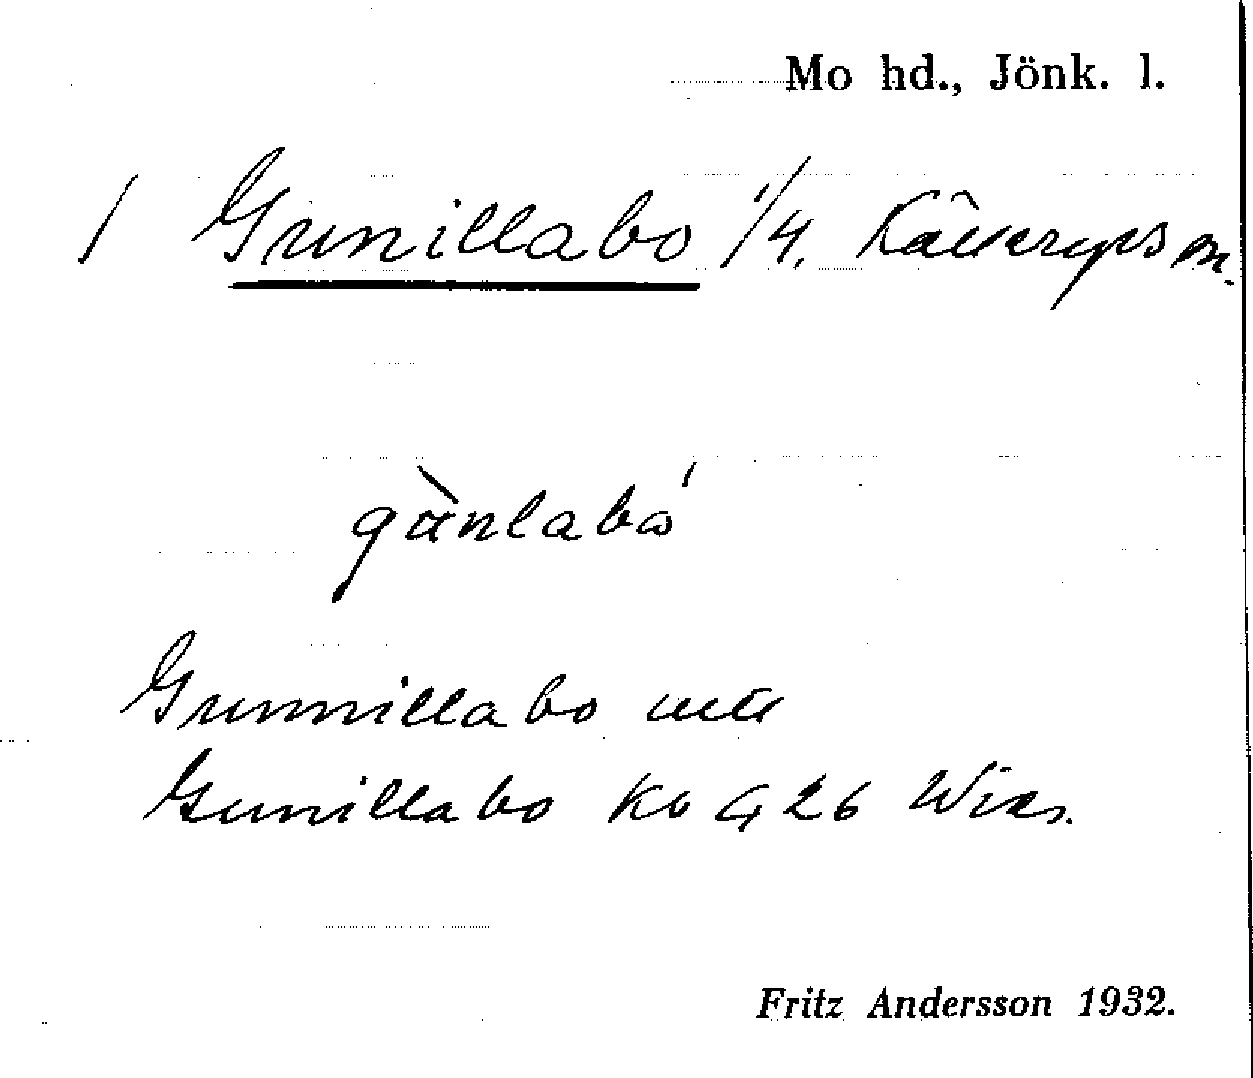 Mo hd., Jönk. l.
1 Gunillabo 1/4. Källeryds sn.
gànlabó
Gunnillabo
Gunillabo Kb G 26 Wias.
Fritz Andersson 1932.